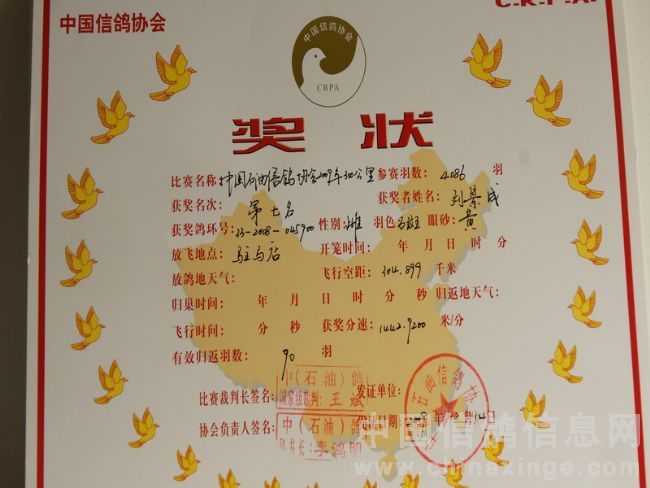 中国信鸽协会
C.R.P.A.
中国信鸽协会
CRPA
奖状
比赛名称:中国石油信鸽协会2009年300公里 参赛羽数: 4086 羽
获奖名次: 第七名 获奖者姓名: 刘景成
获奖鸽环号: 23-2008-045900 性别: 雄 羽色 石斑 眼砂: 黄
放飞地点: 驻马店 开笼时间: 年 月 日 时 分
放鸽地天气: 飞行空距: 304.899 千米
归巢时间: 年 月 日 时 分 秒 归返地天气:
飞行时间: 分 秒 获奖分速: 1442.9200 米/分
有效归返羽数: 90 羽
中(石油)鸽
比赛裁判长签名: 国家级裁判: 王斌 发证单位:
石油信鸽协
中(石油)鸽
协会负责人签名: 秘书长: 李鸿明 日期: 2009年 月14日
中国信鸽信息网
www.chinaxinge.com